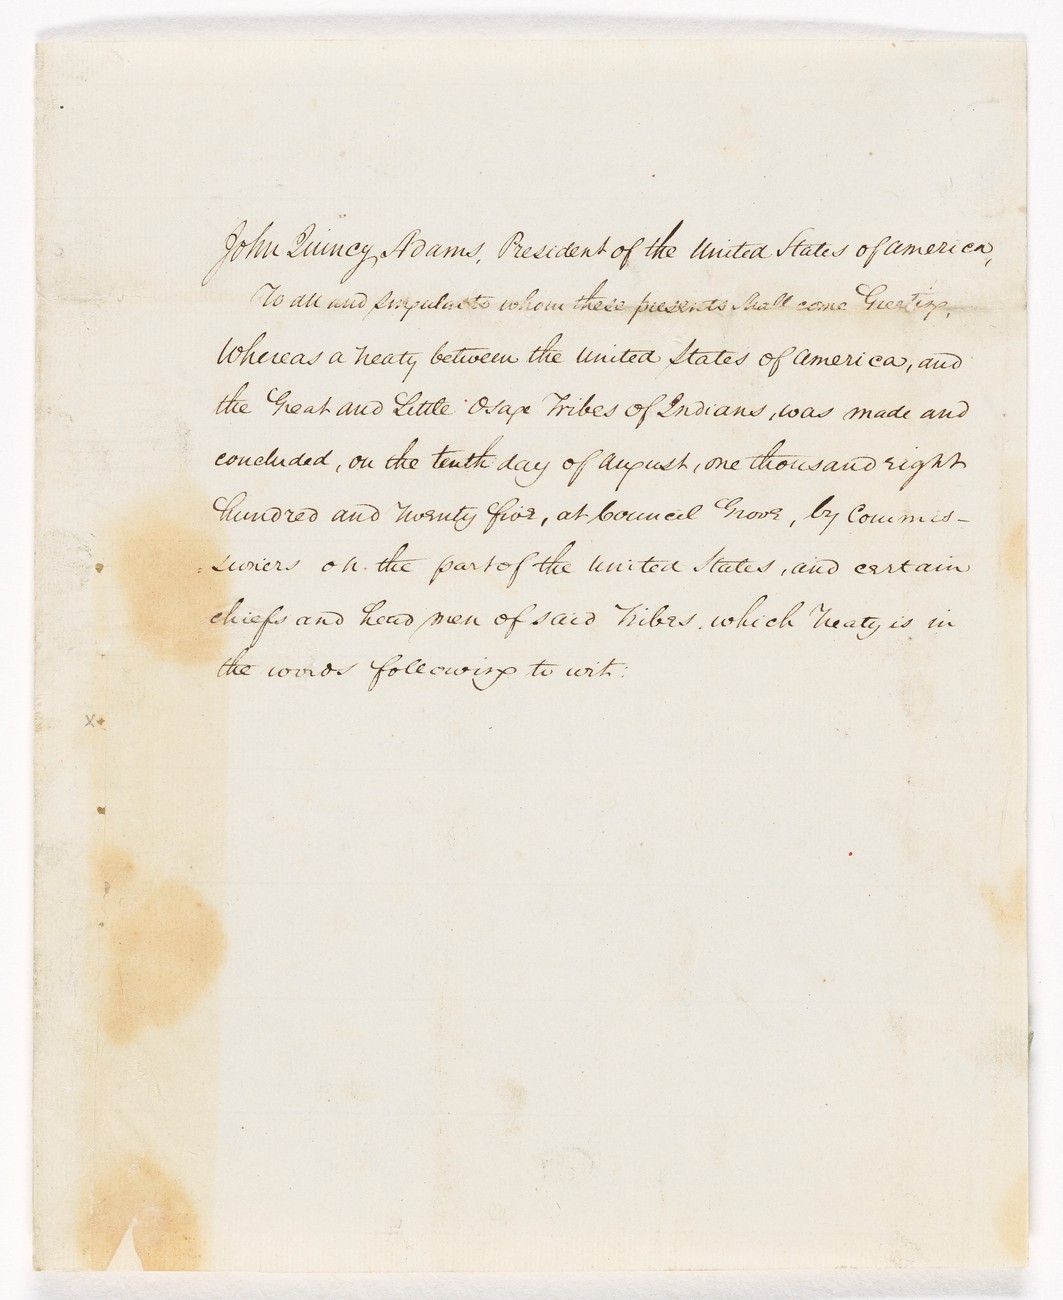 John Quincy Adams, President of the United States of America,
To all and singular to whom these presents shall come Greeting,
Whereas a Treaty between the United States of America, and
the Great and Little Osage Tribes of Indians, was made and
concluded, on the tenth day of August, one thousand eight
hundred and twenty five, at Council Grove, by Commis-
=sioners on the part of the United States, and certain
chiefs and head men of said Tribes. which Treaty is in
the words following to wit:
x